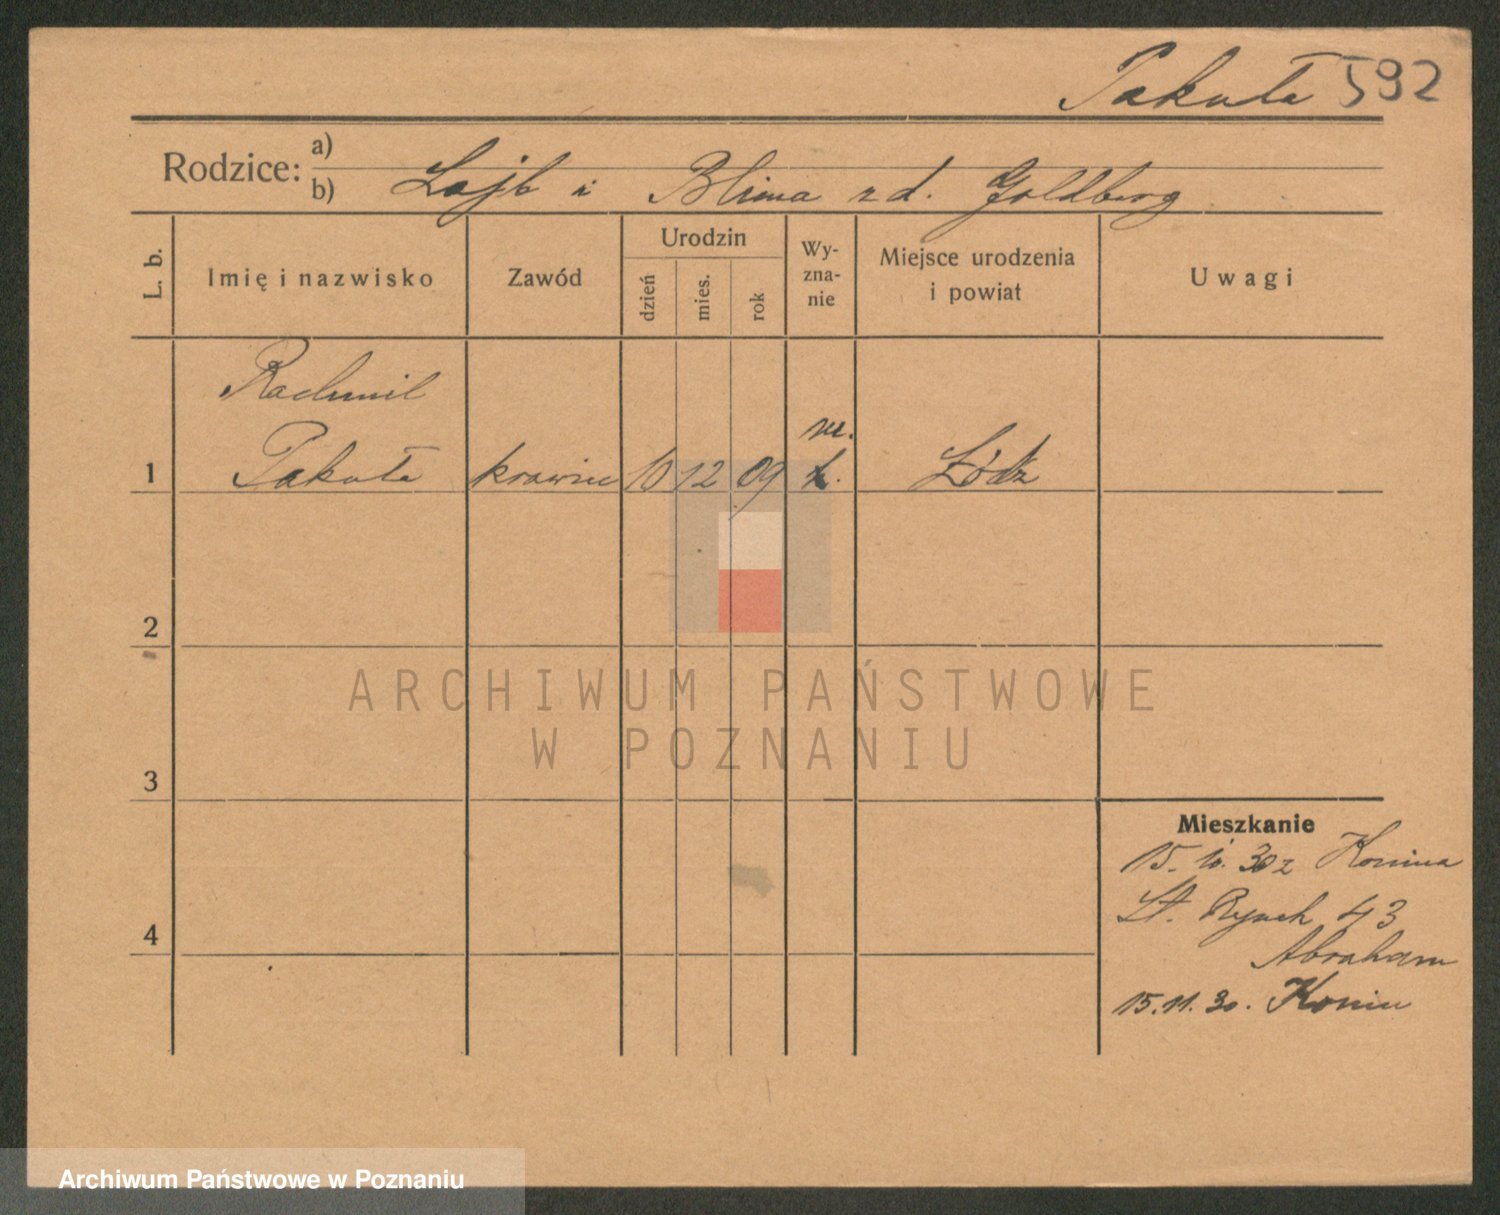 Pakuła 592
Rodzice: a)
b) Lajb i Blima zd. Goldberg
L. b. Imię i nazwisko Zawód Urodzin dzień mies. rok Wy-zna-nie Miejsce urodzenia i powiat Uwagi
Rachmil
m.
1 Pakuła krawiec 10 12 09 Łódź
2
3
4
Mieszkanie
15. 10. 30 z Konina
St. Rynek 43
Abraham
15.11.30. Konin
ARCHIWUM PAŃSTWOWE
W POZNANIU
Archiwum Państwowe w Poznaniu